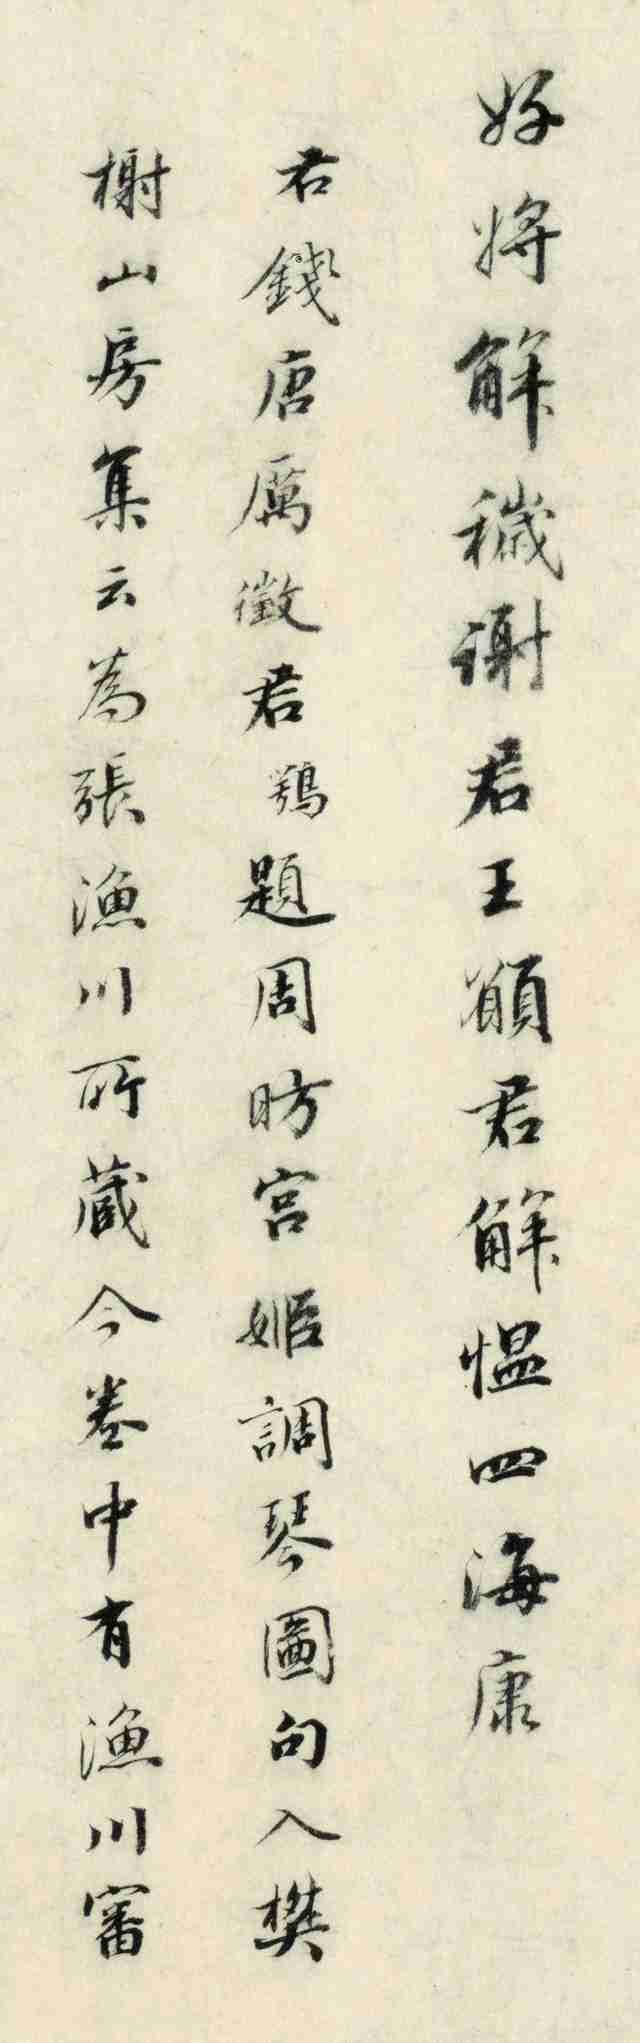 好將解穢謝君王願君解愠四海康
右錢唐厲徵君鶚題周昉宮姬調琴圖句入樊
榭山房集云為張漁川所藏今卷中有漁川審